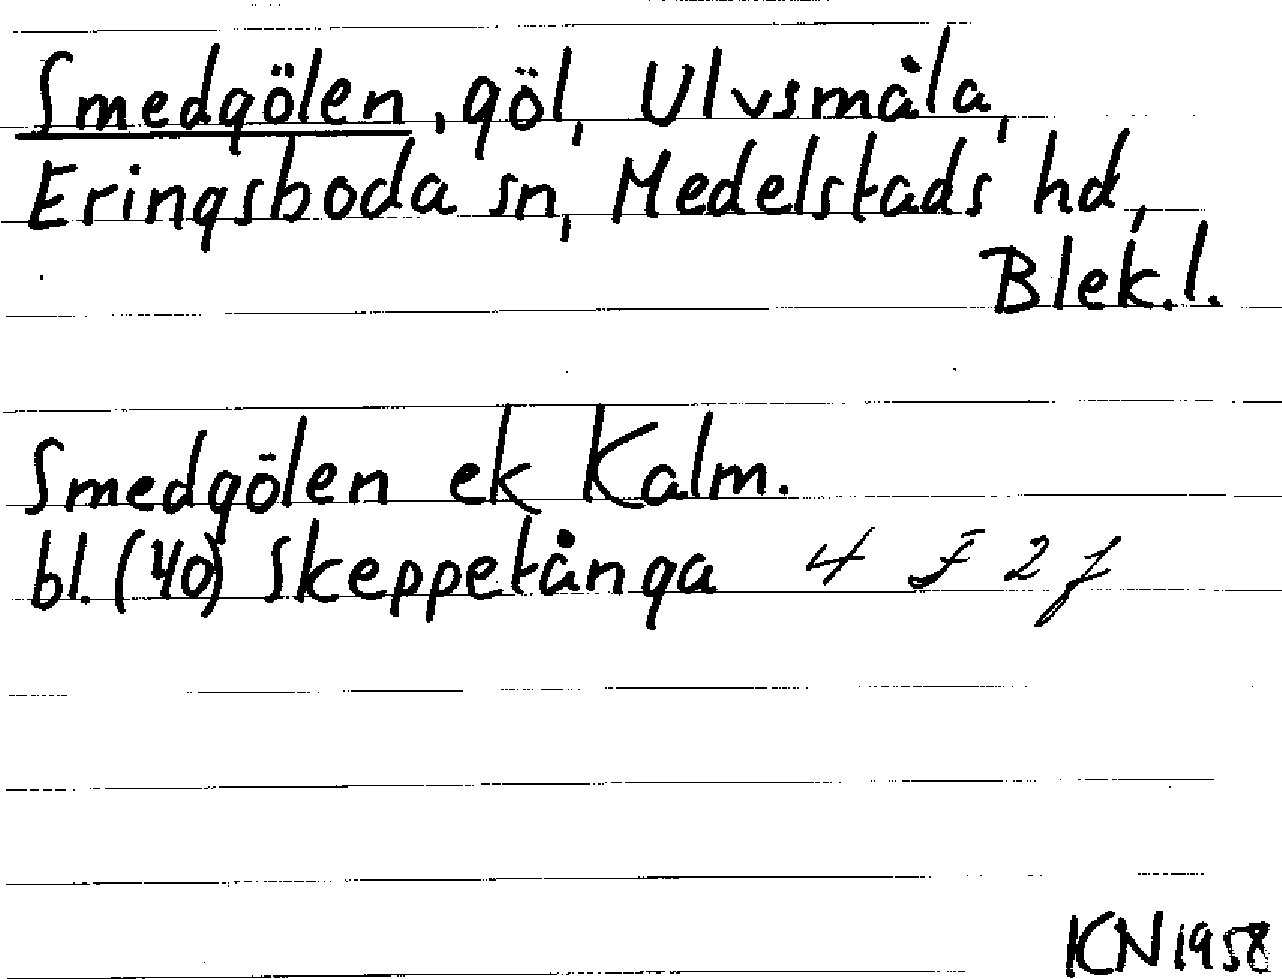 Smedgölen, göl, Ulvsmåla,
Eringsboda sn, Medelstads hd,
Blek.l.
Smedgölen ek Kalm.
bl. (40) Skeppetånga 4 F 2 f
KN 1958